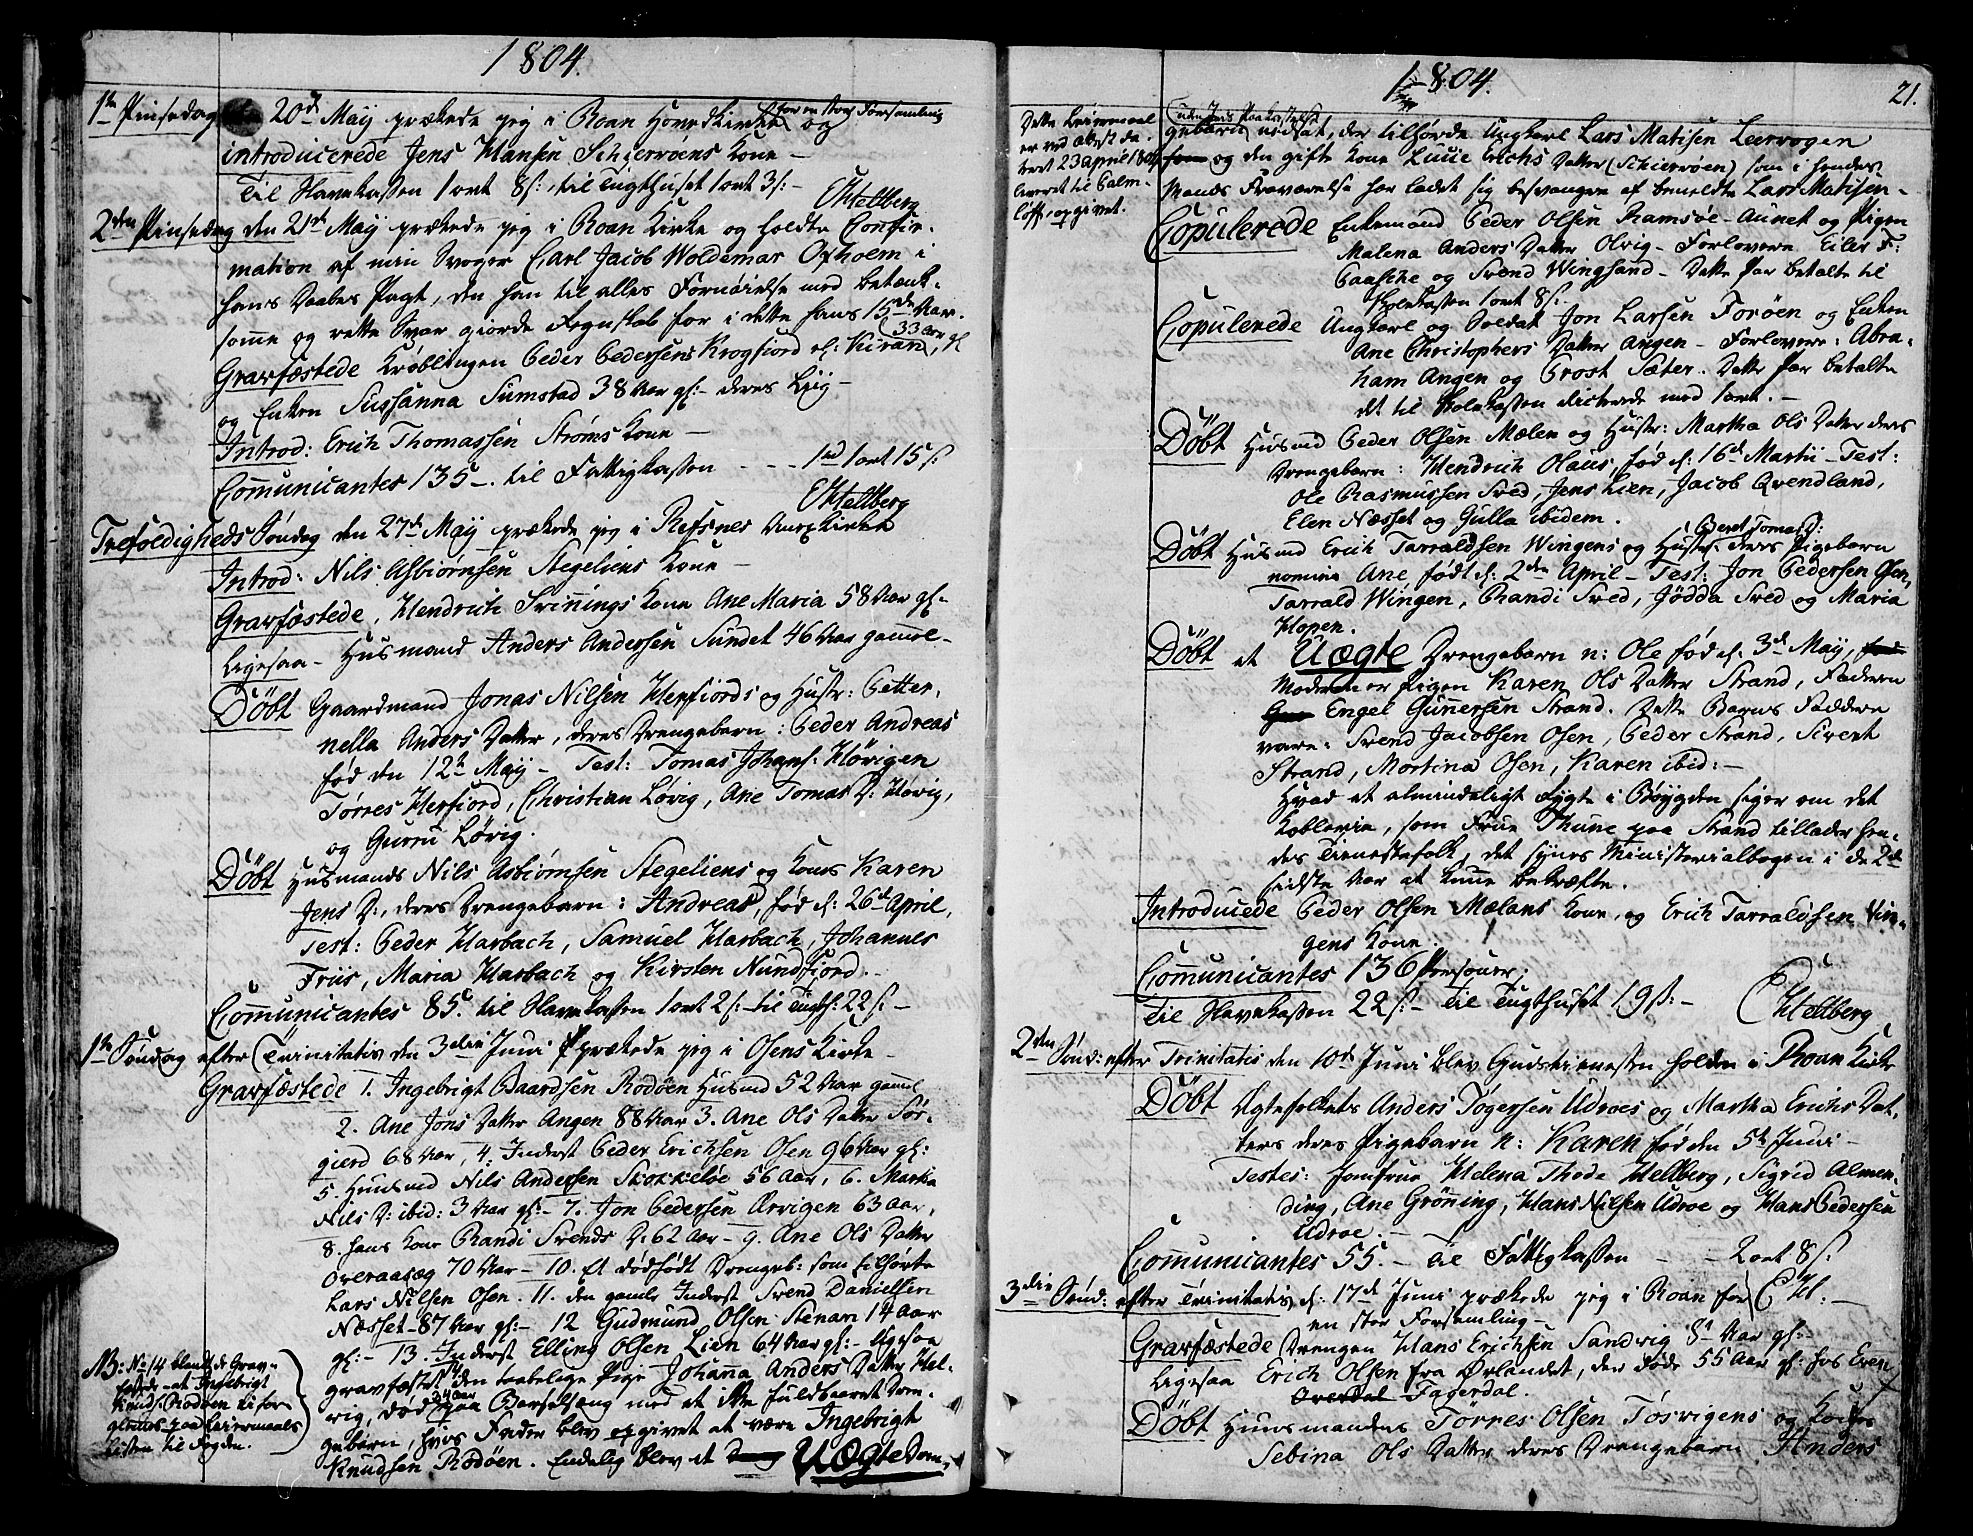 1804.
1ste Pinsedag 20d May prækede jeg i Roan Hovedkirke for en stor Forsamling og
introducerede Jens Hansen Schjervøens Kone –
Til Kirkekassen 1 ort 8 s:, til Tugthuset 1 ort 3 s: –
CHellberg
2den Pinsedag den 21de May prækede jeg i Roan Kirke og holdte Confir-
mation af min Svoger Carl Jacob Woldemar Oxholm i
hans Daabes Pagt, den han til alles Fornøielse med betænk-
somme og rette Svar giorde Regnskab for i dette hans 15de Aar.
Gravfæstede Krøblingen Peder Pedersens Krogfiord el: Kiran, 33 Aar gl
og Enken Sussanna Sumstad 38 Aar gl: – deres Liig –
Introd: Erich Thomassen Strøms Kone –
Communicantes 135 –. til Fattigkassen - - - 1 rd 1 ort 15 s:
CHellberg
Trefoldigheds Søndag den 27de May prækede jeg i Refsnes Anex Kirke
Introd: Nils Asbiørnsen Stegeliens Kone –
Gravfæstede, Hendrich Svinnings Kone Ane Maria 58 Aar gl: –
Ligesaa – Husmand Anders Andersen Sundet 46 Aar gammel –
Döbt Gaardmand Jonas Nilsen Herfiords og Hustr: Petter-
nella Anders Datter, deres Drengebarn: Peder Andreas
fød den 12te May – Test: Tomas Johans: Høvigen
Tørres Herfiord, Christian Løvig, Ane Tomas D: Høvig,
og Gurru Løvig.
Döbt Husmands Nils Asbiørnsen Stegeliens og Kones Karen
Jens D:, deres Drengebarn: Andreas, fød d: 26de April,
Test: Peder Harbach, Samuel Harbach, Johannes
Friis, Maria Harbach og Kirsten Nundfjord. –
Communicantes 85. til Kirkekassen 1 ort 2 s: – til Tugth: 22 s: –
1ste Søndag efter Trinitatis den 3die Juni prækede jeg i Osens Kirke –
Gravfæstede 1. Ingebrigt Baardsen Rodøen Husmd 52 Aar gammel
2. Ane Jons Datter Angen 88 Aar 3. Ane Ols Datter Sør-
gierd 68 Aar, 4. Inderst Peder Erichsen Osen 96 Aar gl:
5. Huusmd Nils Andersen Skokkeløe 56 Aar, 6. Marta
Nils D: ibid: 3 Aar gl: – 7. Jon Pedersen Arvigen 63 Aar,
8. hans Kone Randi Svends D: 62 Aar – 9. Ane Ols Datter
Overaasæg 70 Aar – 10. Et dødfødt Drengeb: som tilhørte
Lars Nilsen Osen. 11. den gamle Inderst Svend Danielsen
Næsset – 87 Aar gl: – 12 Gudmund Olsen Stenam 14 Aar
gl: – 13. Inderst Elling Olsen Lien 64 Aar gl: – Ligesaa
gravfæstet 14 den taabelige Pige Johanna Anders Datter Hel-
vig, død 34 Aar paa Barselsæng med et ikke fuldbaaret Dren-
gebarn, hvis Fader blev opgivet at være Ingebrigt
Knudsen Rodøen. Endelig blev et Uægte Dren-
NB: No 14 blandt de Grav-
fæstede – at Ingebrigt
Knuds: Rodøen er
paa Leiermaals
Listen til Fogden.
1804.
21.
Dette Leiermaal
er ved Attest da-
teret 23 April 1804
leveret til Palm-
løff, opgivet.
gebarn uden Jords Paakastelse nedsat, der tilhørde Ungkarl Lars Matisen Leervogen
og den gifte Kone Lucie Erichs Datter (Schiervøen) som i hendes
Mands Fraværelse har ladet sig besvangre af bemeldte Lars Matisen –
Copulerede Enkemand Peder Olsen Ramsøe-Aunet og Pigen
Malena Anders Datter Olvig – Forlovere Eiler F:
Paasche og Svend Wingsand – Dette Par betalte til
Skolekassen 1 ort 8 s: –
Copulerede Ungkarl og Soldat Jon Larsen Forøen og Enken
Ane Christophers Datter Angen – Forlovere: Abra-
ham Angen og Prost Sæter. Dette Par betalte
det til Skolekassen dicterede med 1 ort. –
Döbt Husmd Peder Olsen Mælen og Hustr: Martha Ols Datter deres
Drengebarn: Hendrich Olaus, fød d: 16de Martii – Test:
Ole Rasmussen Sved, Jens Lien, Jacob Qvendland,
Elen Næsset og Gulla ibidem.
Döbt Husmd Erich Tarraldsen Wingens og Hustr: Beret Tomas D: deres Pigebarn
nomine Ane, født d: 2den April – Test: Jon Pedersen Osen,
Tarrald Wingen, Randi Sved, Jödda Sved og Maria
Hopen.
Döbt et Uægte Drengebarn n: Ole fød d: 3de May,
Moderen er Pigen Karen Ols Datter Strand, Faderen
Engel Gunersen Strand. Dette Barns Faddere
vare: Svend Jacobsen Osen, Peder Strand, Sivert
Strand, Mortina Osen, Karen ibid: –
Hvad et almindeligt Rygte i Bøygden siger om det
Koblerie, som Frue Thune paa Strand tillader hen-
des Tienestefolk, det synes Ministerialbogen i de 2de
sidste Aar at kunne bekræfte.
Introducede Peder Olsen Mælans Kone, og Erich Tarraldsen Vin-
gens Kone.
Communicantes 136 Personer;
Til Kirkekassen 22 s: – til Tugthuset 19 s: – CHellberg
2den Sønd: efter Trinitatis den 10de Juni blev Gudstienesten holden i Roan Kirke
Döbt Ægtefolkets Anders Tøgersen Udroes og Martha Erichs Dat-
ters deres Pigebarn n: Karen fød den 5te Juni –
Testes: Jomfrue Helena Thode Hellberg, Sigrid Almen-
ding, Ane Grøning, Hans Nilsen Udroe og Hans Pedersen
Udroe. –
Communicantes 55. – Til Fattigkassen – – 2 ort 8 s:
3die Sønd: efter Trinitatis d: 17de Juni prækede jeg i Roan for CH. –
en stor Forsamling –
Gravfæstede Drengen Hans Erichsen Sandvig 8 Aar gl: –
Ligesaa Erich Olsen fra Ørlandet, der døde 55 Aar gl: hos Even
Overdal Fagerdal.
Döbt Huusmanden Tørres Olsen Tøsvigens og Kones
Sebina Ols Datter deres Drengebarn Anders